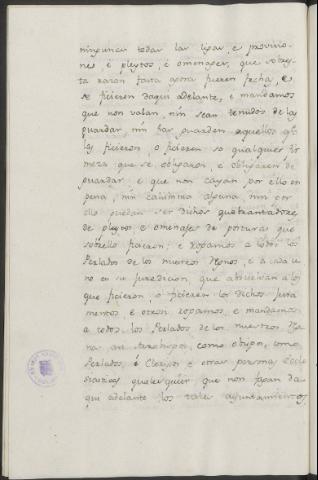 ningunas todas las ligas, e provisio-
nes é pleytos, é omenages, que sobres-
ta razon fasta agora fueron fechas, e
se ficieren daqui adelante, e mandamos
que non valan, nin sean tenudos de las
guardar, nin las guarden aquellos que
las ficieron, o ficieren so qualquier
que se obligaron, e obligaren de
guardar, e que non cayan por ello en
pena, nin calunnia alguna, nin por
ello puedan ser dichos quebrantadores
de pleytos e omenages de posturas que
sobrello ficieron; e rogamos a todos los
Perlados de los nuestros Regnos, e a cada u-
no en su juredicion, que absuelvan a los
que ficieron, o ficieren los dichos jura-
mentos e otrosi rogamos, e mandamos
a todos los Perlados de los nuestros Reg-
nos, asi Arzobispos, como obispos, como
Perlados, é Clerigos e otras personas Ecle-
siasticas qualesquier que non fagan da-
qui adelante los tales ayuntamientos,